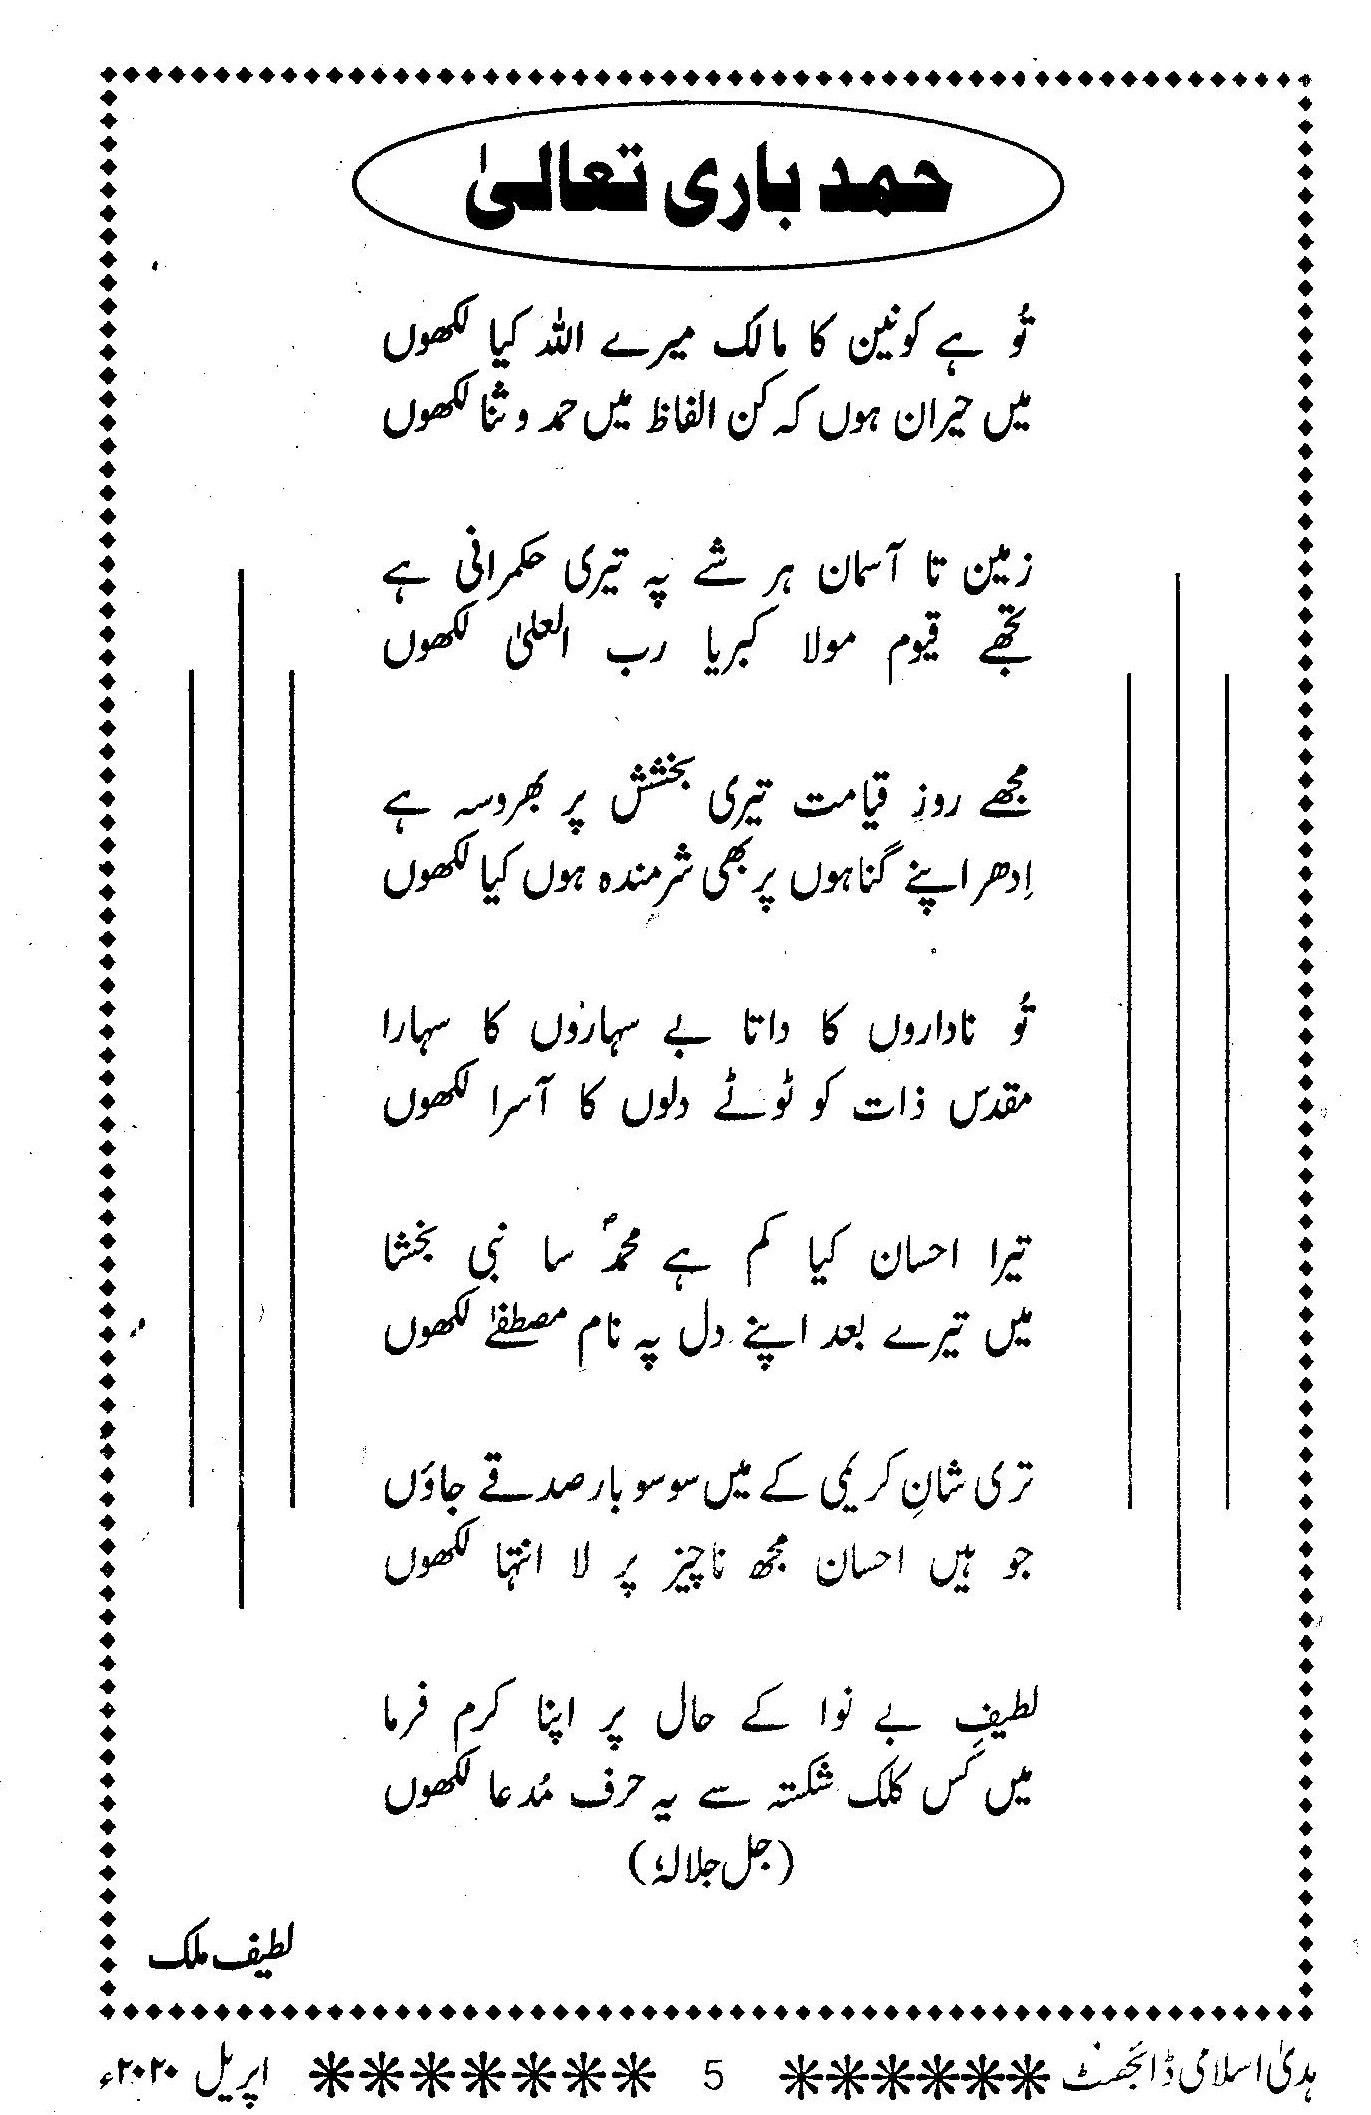 حمد باری تعالیٰ
تُو ہے کونین کا مالک میرے اللہ کیا لکھوں
میں حیران ہوں کہ کن الفاظ میں حمد و ثنا لکھوں
زمین تا آسمان ہر شے پہ تیری حکمرانی ہے
تجھے قیوم مولا کبریا رب العلیٰ لکھوں
مجھے روزِ قیامت تیری بخشش پر بھروسہ ہے
اِدھر اپنے گناہوں پر بھی شرمندہ ہوں کیا لکھوں
تُو ناداروں کا داتا بے سہاروں کا سہارا
مقدس ذات کو ٹوٹے دلوں کا آسرا لکھوں
تیرا احسان کیا کم ہے محمدؐ سا نبی بخشا
میں تیرے بعد اپنے دل پہ نام مصطفےٰ لکھوں
تری شانِ کریمی کے میں سو سو بار صدقے جاؤں
جو ہیں احسان مجھ ناچیز پر لا انتہا لکھوں
لطیفِ بے نوا کے حال پر اپنا کرم فرما
میں کس کلک شکستہ سے یہ حرف مُدعا لکھوں
(جل جلالہٗ)
لطیف ملک
ہدیٰ اسلامی ڈائجسٹ 5 اپریل ۲۰۲۰ء